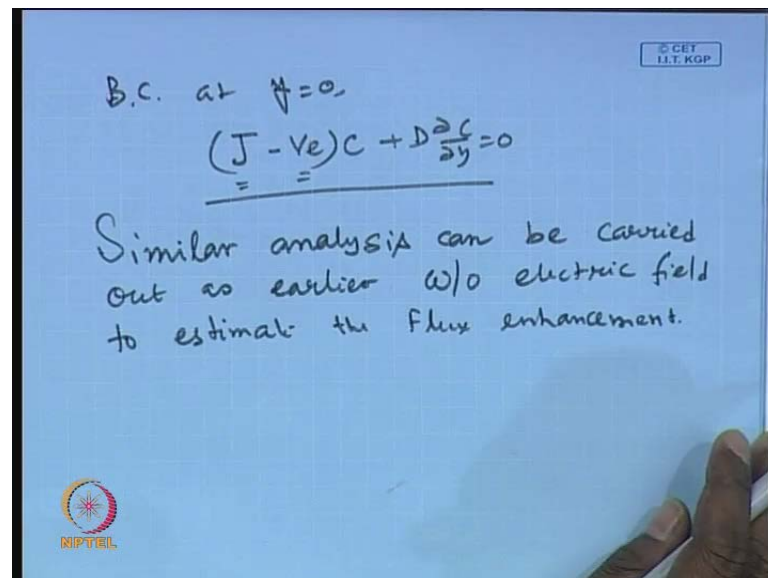 © CET
I.I.T. KGP
B.C. at y=0,
(J - Ve)C + D ∂C/∂y = 0
Similar analysis can be carried
out as earlier w/o electric field
to estimate the flux enhancement.
NPTEL